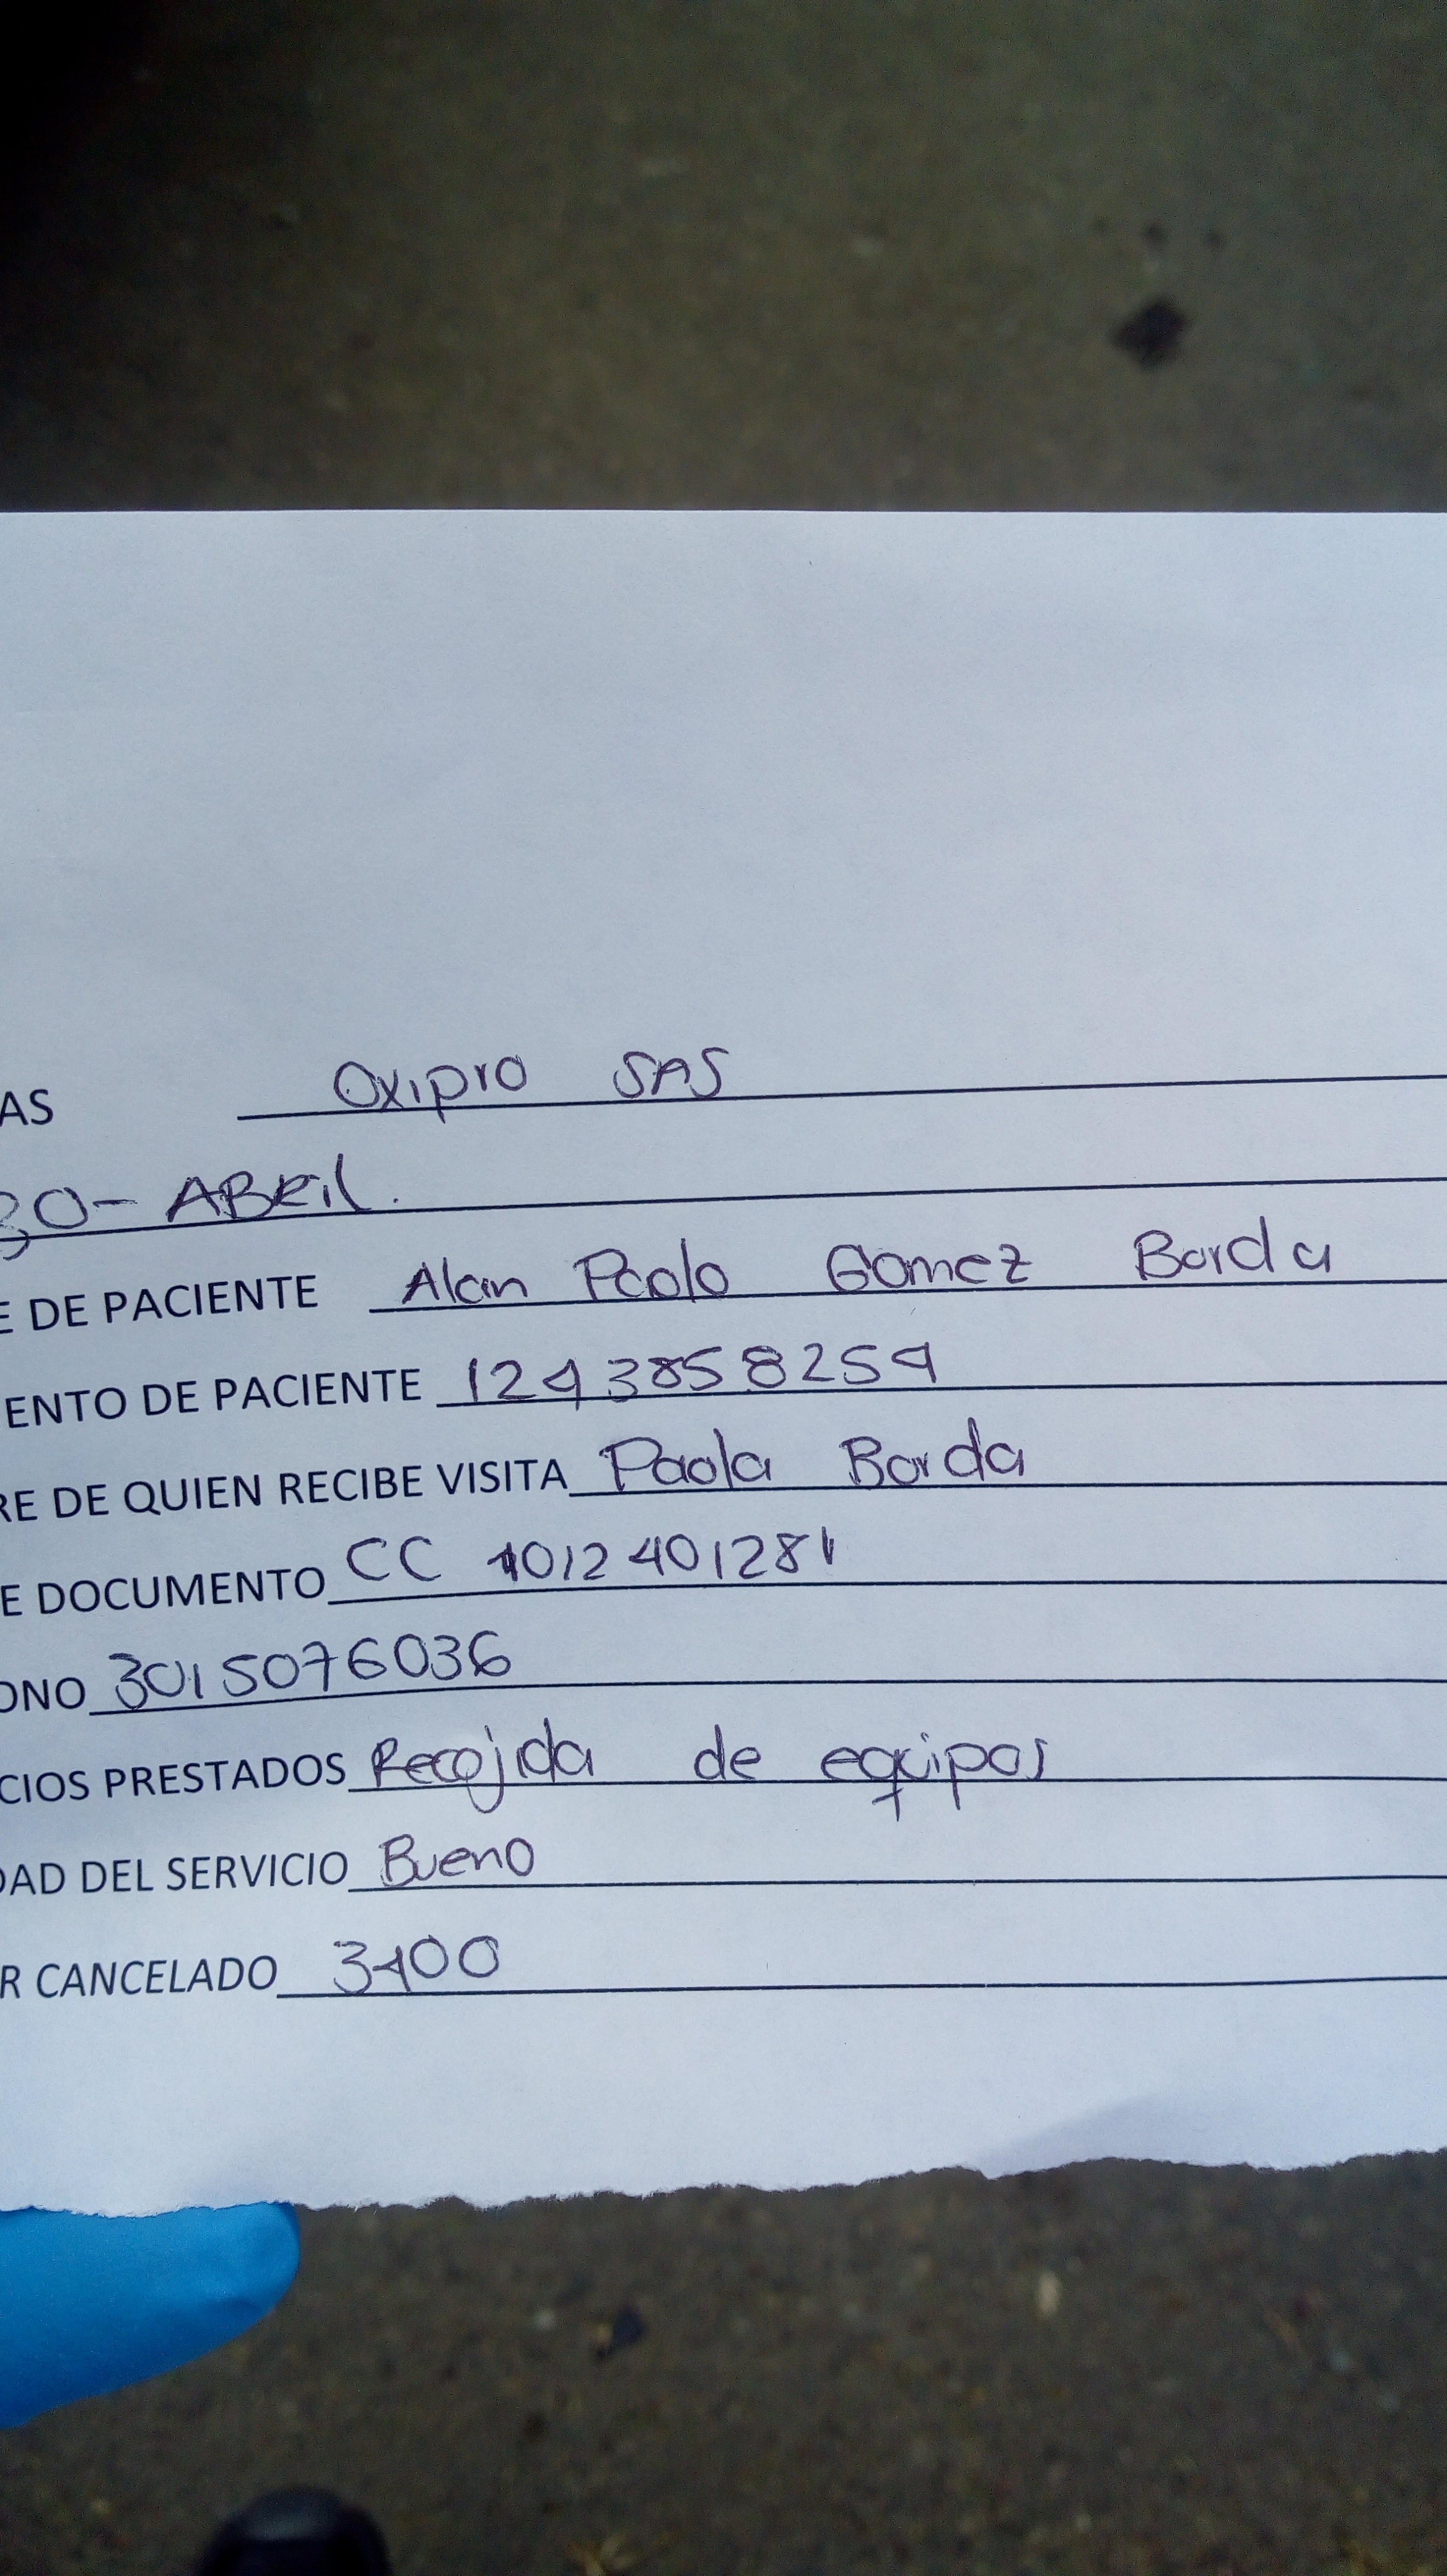 AS Oxipro SAS
30 - ABRil.
E DE PACIENTE Alan Paolo Gomez Borda
ENTO DE PACIENTE 1243858254
RE DE QUIEN RECIBE VISITA Paola Borda
E DOCUMENTO CC 1012401281
ONO 3015076036
CIOS PRESTADOS Recojida de equipos
DAD DEL SERVICIO Bueno
R CANCELADO 3400